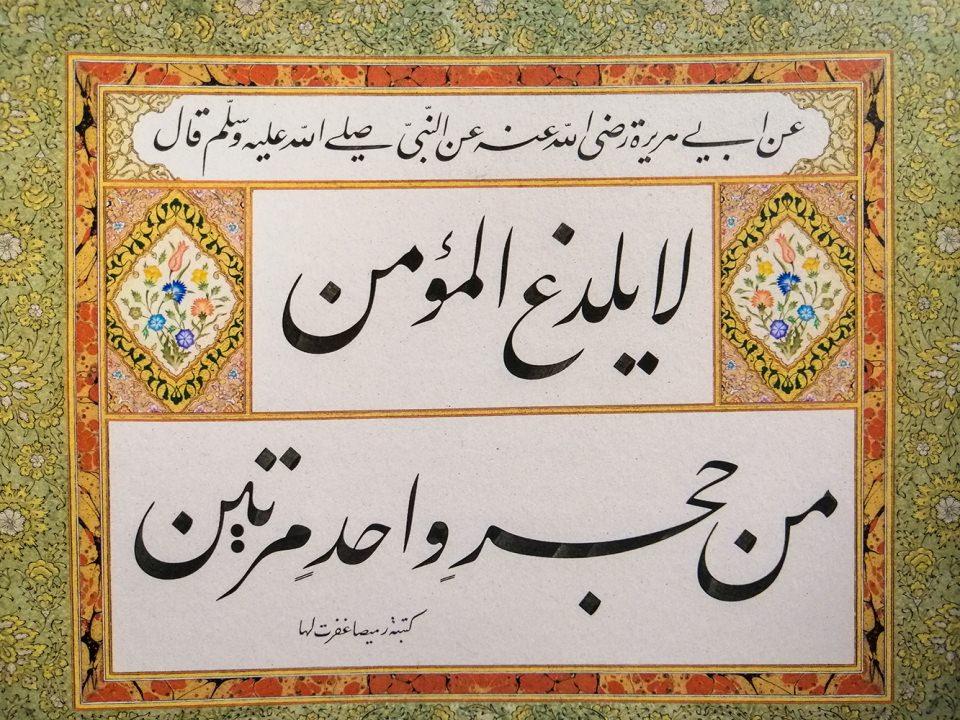 عن ابي هريرة رضى الله عنه عن النبىّ صلى الله عليه وسلّم قال
لا يلدغ المؤمن
من جحرٍ واحدٍ مرتين
كتبته رميصا غفرت لها